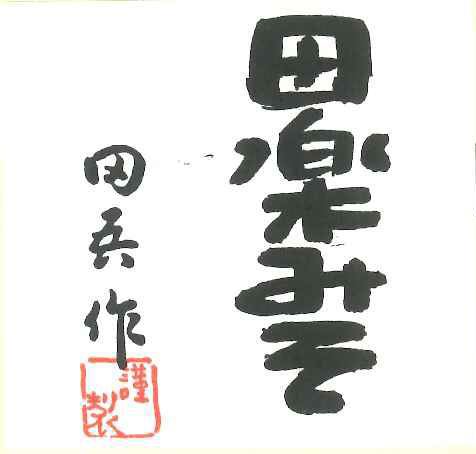 田楽みそ
田吾作
謹製